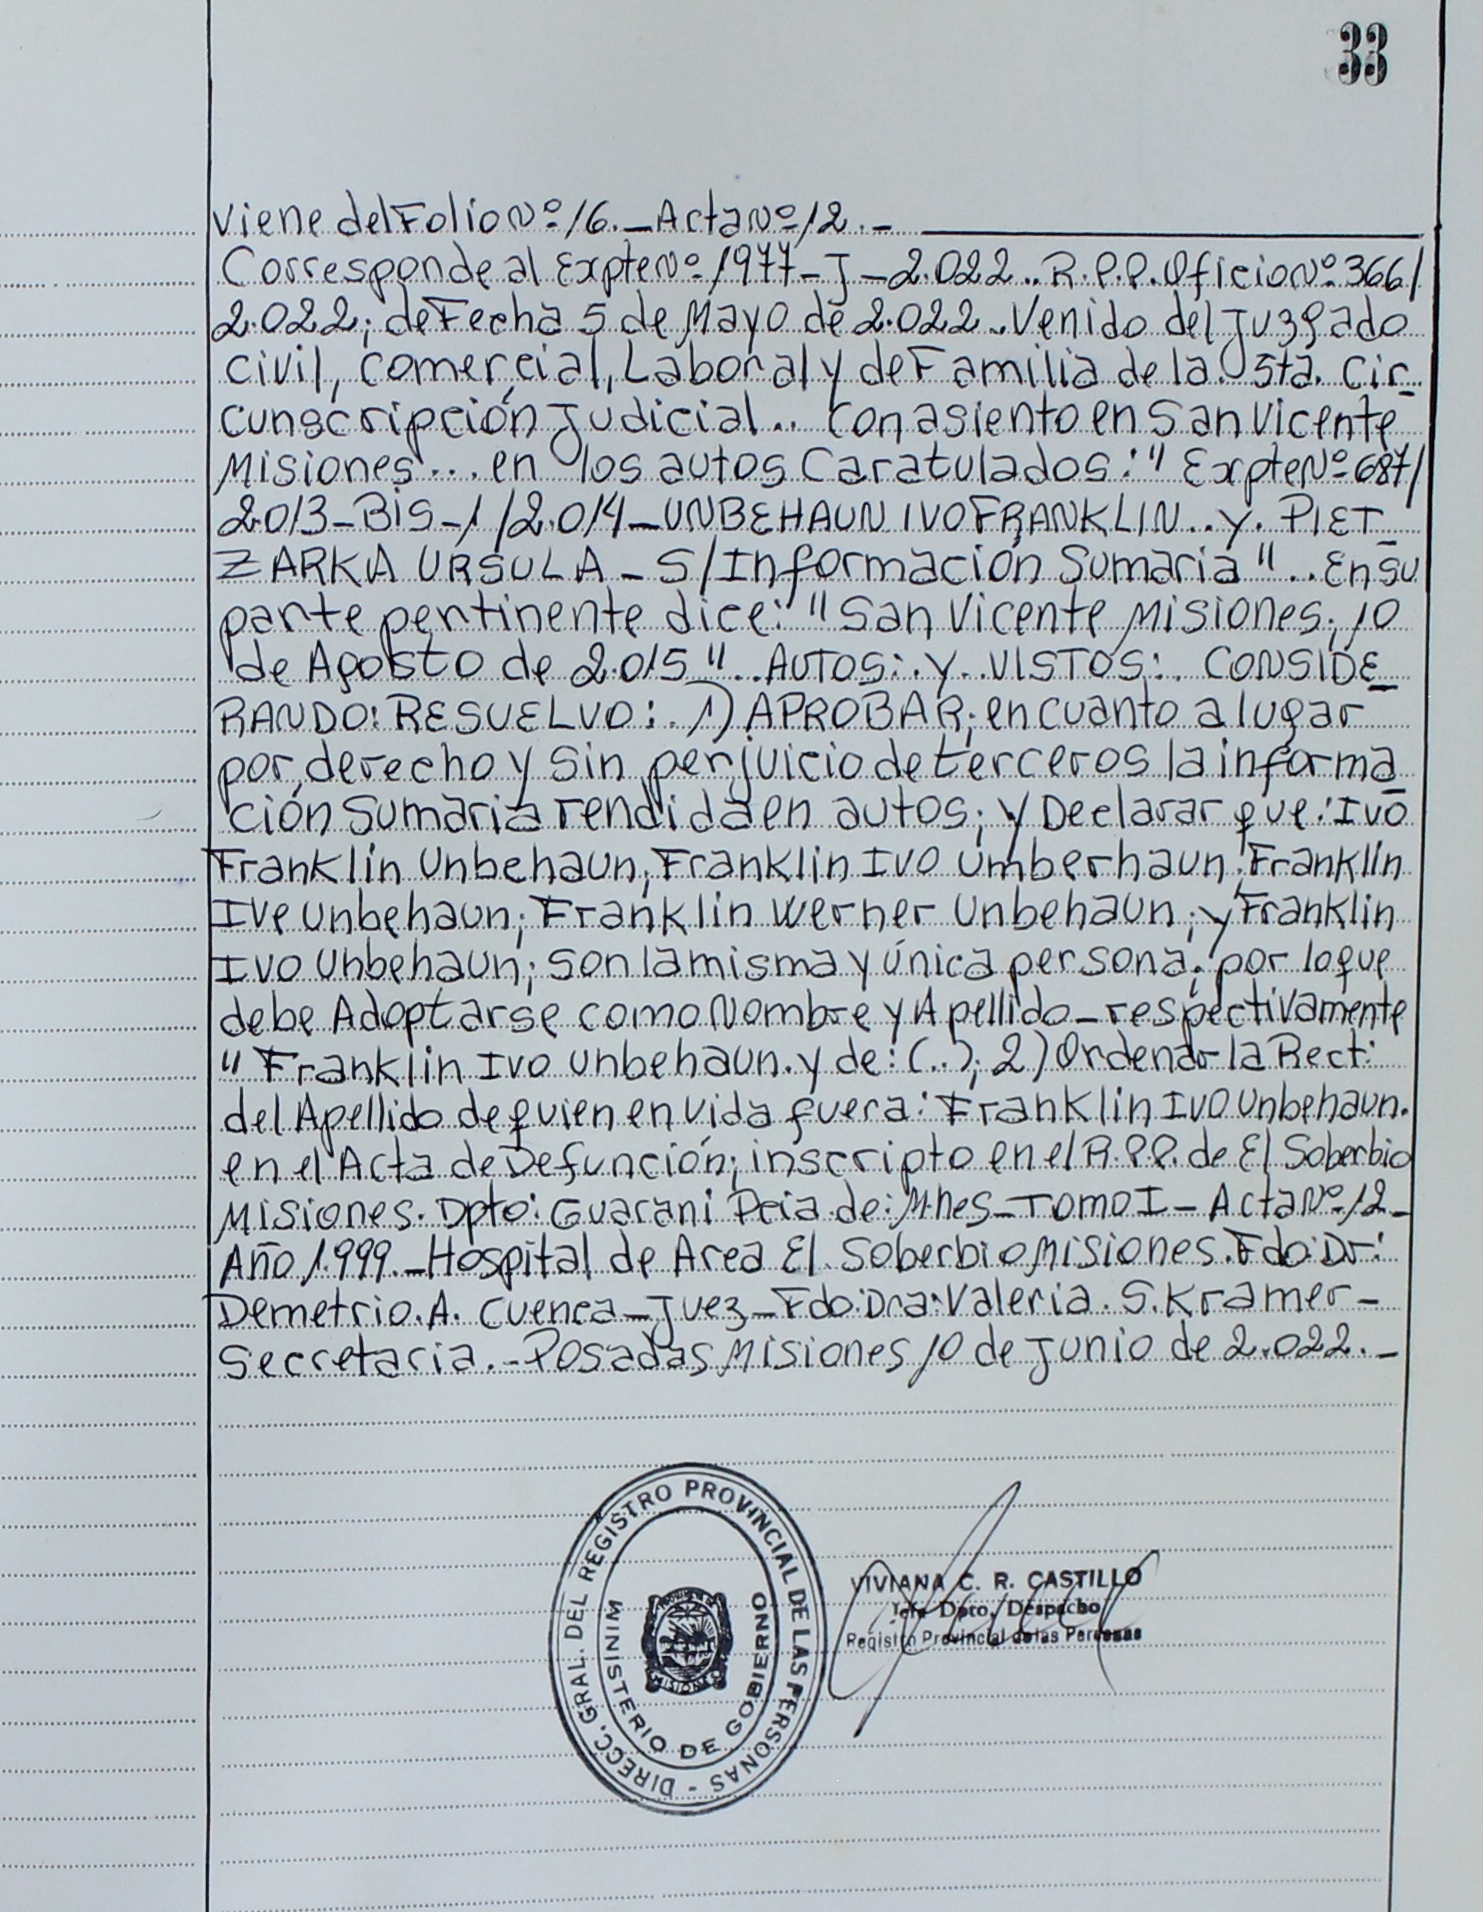 33
Viene del Folio Nº 16._Acta Nº 12._
Corresponde al Expte Nº 1977_J_2.022..R.P.P.Oficio Nº 366/
2.022; de Fecha 5 de Mayo de 2.022..Venido del Juzgado
Civil, Comercial, Laboral y de Familia de la 5ta. Cir_
cunscripción Judicial.. Con asiento en San Vicente
Misiones... en los autos Caratulados: " Expte Nº 687/
2.013_Bis_1/2.014_UNBEHAUN IVO FRANKLIN..Y. PIET_
ZARKA URSULA _ S/Información Sumaria "..En su
parte pertinente dice: "San Vicente Misiones; 10
de Agosto de 2.015"..AUTOS:.Y..VISTOS:. CONSIDE_
RANDO: RESUELVO:. 1) APROBAR; en cuanto a lugar
por derecho y sin perjuicio de terceros la informa_
ción Sumaria rendida en autos; y Declarar que: Ivo
Franklin Unbehaun; Franklin Ivo Umberhaun; Franklin
Ive Unbehaun; Franklin Werner Unbehaun; y Franklin
Ivo Unbehaun; son la misma y única persona; por lo que
debe Adoptarse como Nombre y Apellido_respectivamente
" Franklin Ivo Unbehaun. y de: (..); 2) Ordendo la Rect:
del Apellido de quien en vida fuera: Franklin Ivo Unbehaun.
en el Acta de Defunción; inscripto en el R.P.P. de El Soberbio
Misiones. Dpto: Guarani Pcia de: Mnes_Tomo I_Acta Nº 12_
Año 1.999._Hospital de Area El Soberbio Misiones. Fdo: Dr:
Demetrio.A. Cuenca_Juez_Fdo: Dra: Valeria. S. Kramer_
Secretaria._Posadas Misiones 10 de Junio de 2.022._
DIRECC. GRAL. DEL REGISTRO PROVINCIAL DE LAS PERSONAS -
MINISTERIO DE GOBIERNO
MISIONES
VIVIANA C. R. CASTILLO
Jefe Dpto. Despacho
Registro Provincial de las Personas